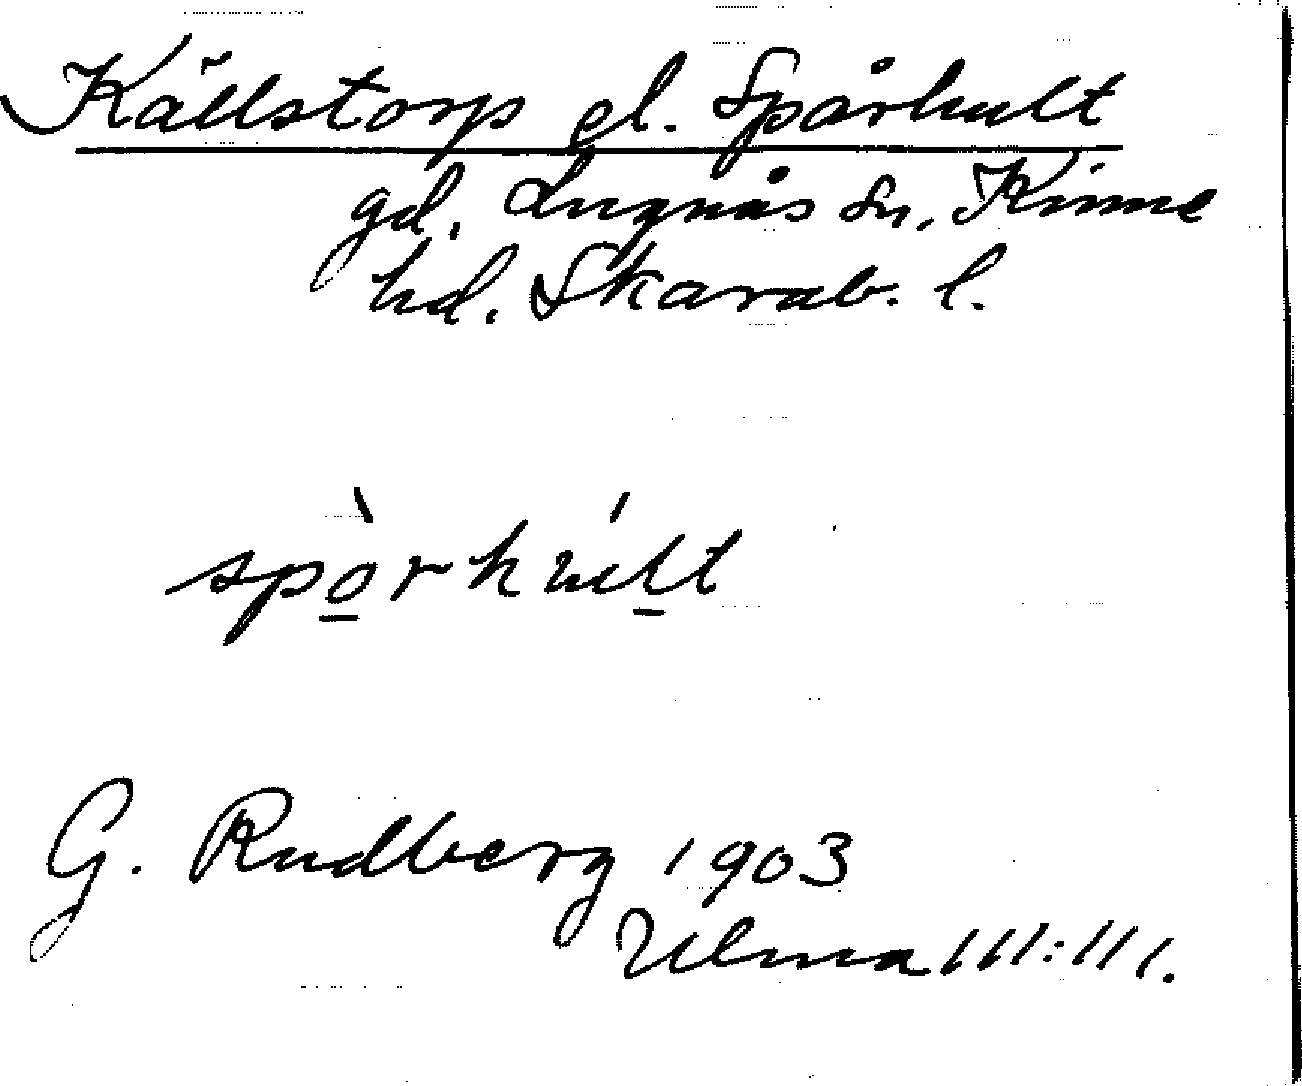 Källstorp el. Spårhult
gd. Lugnås sn, Kinne
hd. Skarab. l.
spò̲rhúl̲t
G. Rudberg 1903
Ulma 111:111.